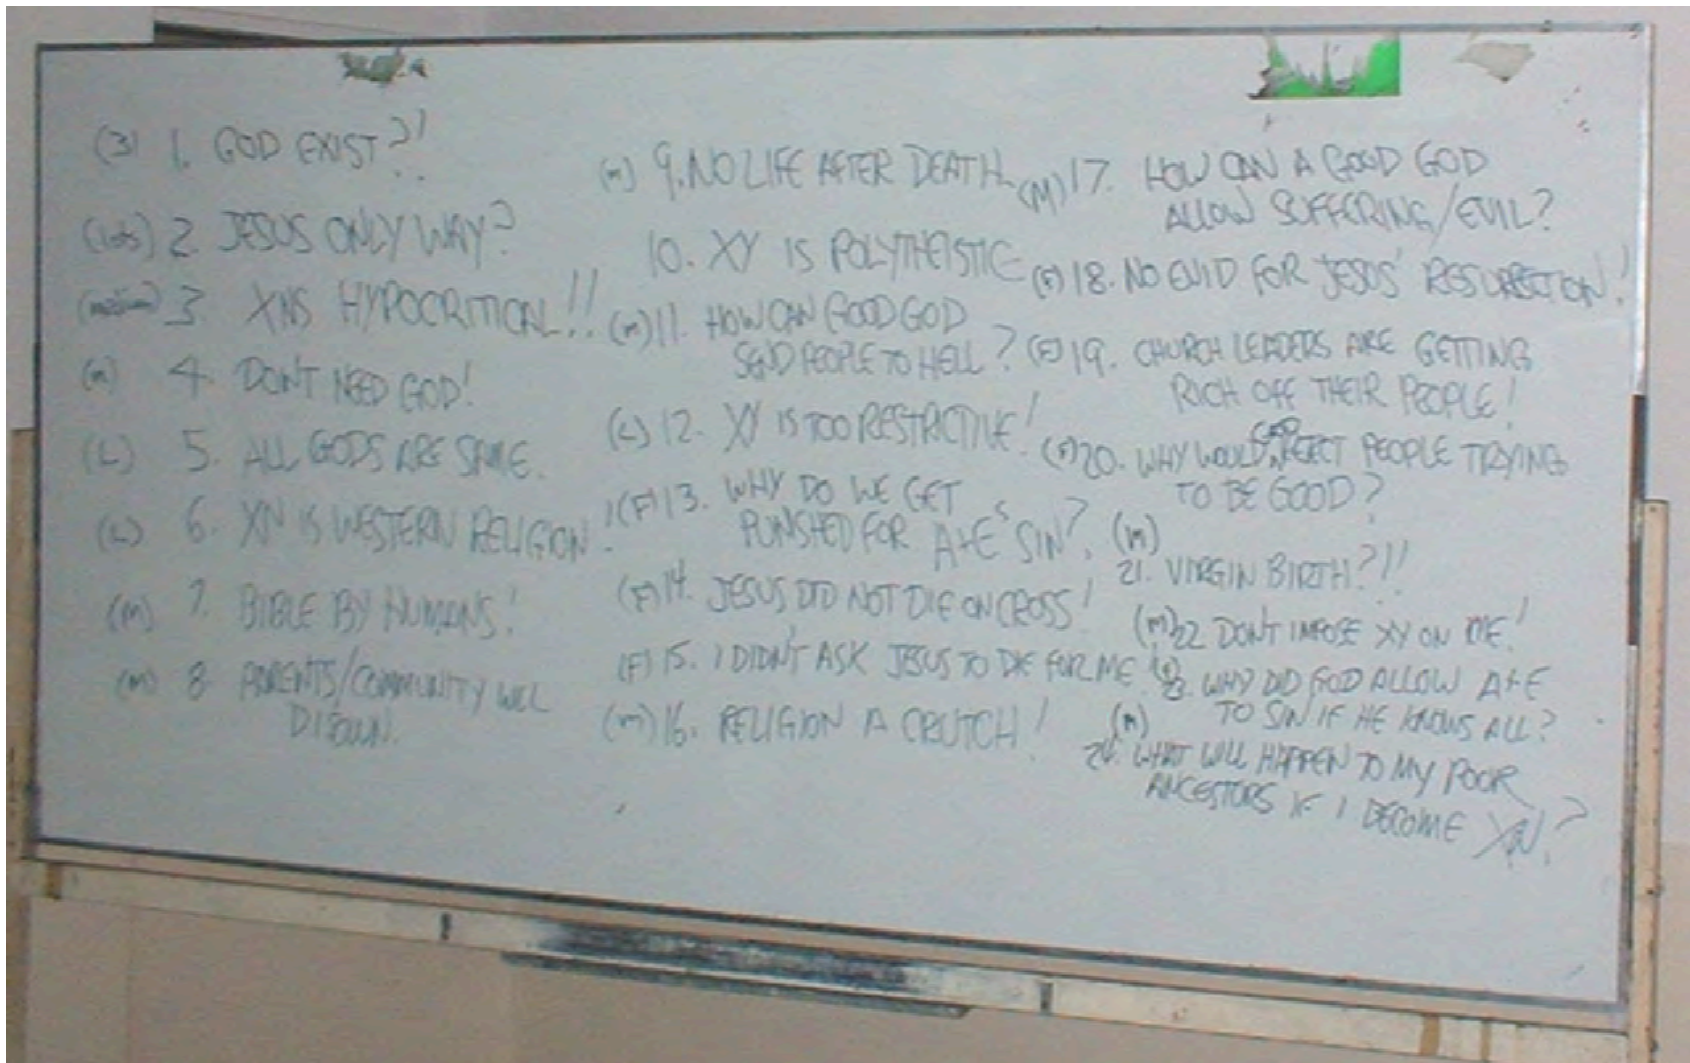 (3) 1. GOD EXIST?!
(lots) 2. JESUS ONLY WAY?
(medium) 3. XNS HYPOCRITICAL!!
(m) 4. DON'T NEED GOD!
(L) 5. ALL GODS ARE SAME.
(L) 6. XN IS WESTERN RELIGION!
(M) 7. BIBLE BY HUMANS!
(M) 8. PARENTS/COMMUNITY WILL
DISOWN.
(m) 9. NO LIFE AFTER DEATH
10. XY IS POLYTHEISTIC
(m) 11. HOW CAN GOOD GOD
SEND PEOPLE TO HELL?
(L) 12. XY IS TOO RESTRICTIVE!
(F) 13. WHY DO WE GET
PUNISHED FOR A+E'S SIN?
(F) 14. JESUS DID NOT DIE ON CROSS!
(F) 15. I DIDN'T ASK JESUS TO DIE FOR ME
(m) 16. RELIGION A CRUTCH!
(M) 17. HOW CAN A GOOD GOD
ALLOW SUFFERING/EVIL?
(F) 18. NO EVID FOR JESUS' RESURRECTION!
(F) 19. CHURCH LEADERS ARE GETTING
RICH OFF THEIR PEOPLE!
20. WHY WOULD GOD REJECT PEOPLE TRYING
TO BE GOOD?
(m)
21. VIRGIN BIRTH?!!
(M) 22 DON'T IMPOSE XY ON ME!
23. WHY DID GOD ALLOW A+E
TO SIN IF HE KNOWS ALL?
(m)
24. WHAT WILL HAPPEN TO MY POOR
ANCESTORS IF I BECOME XN?